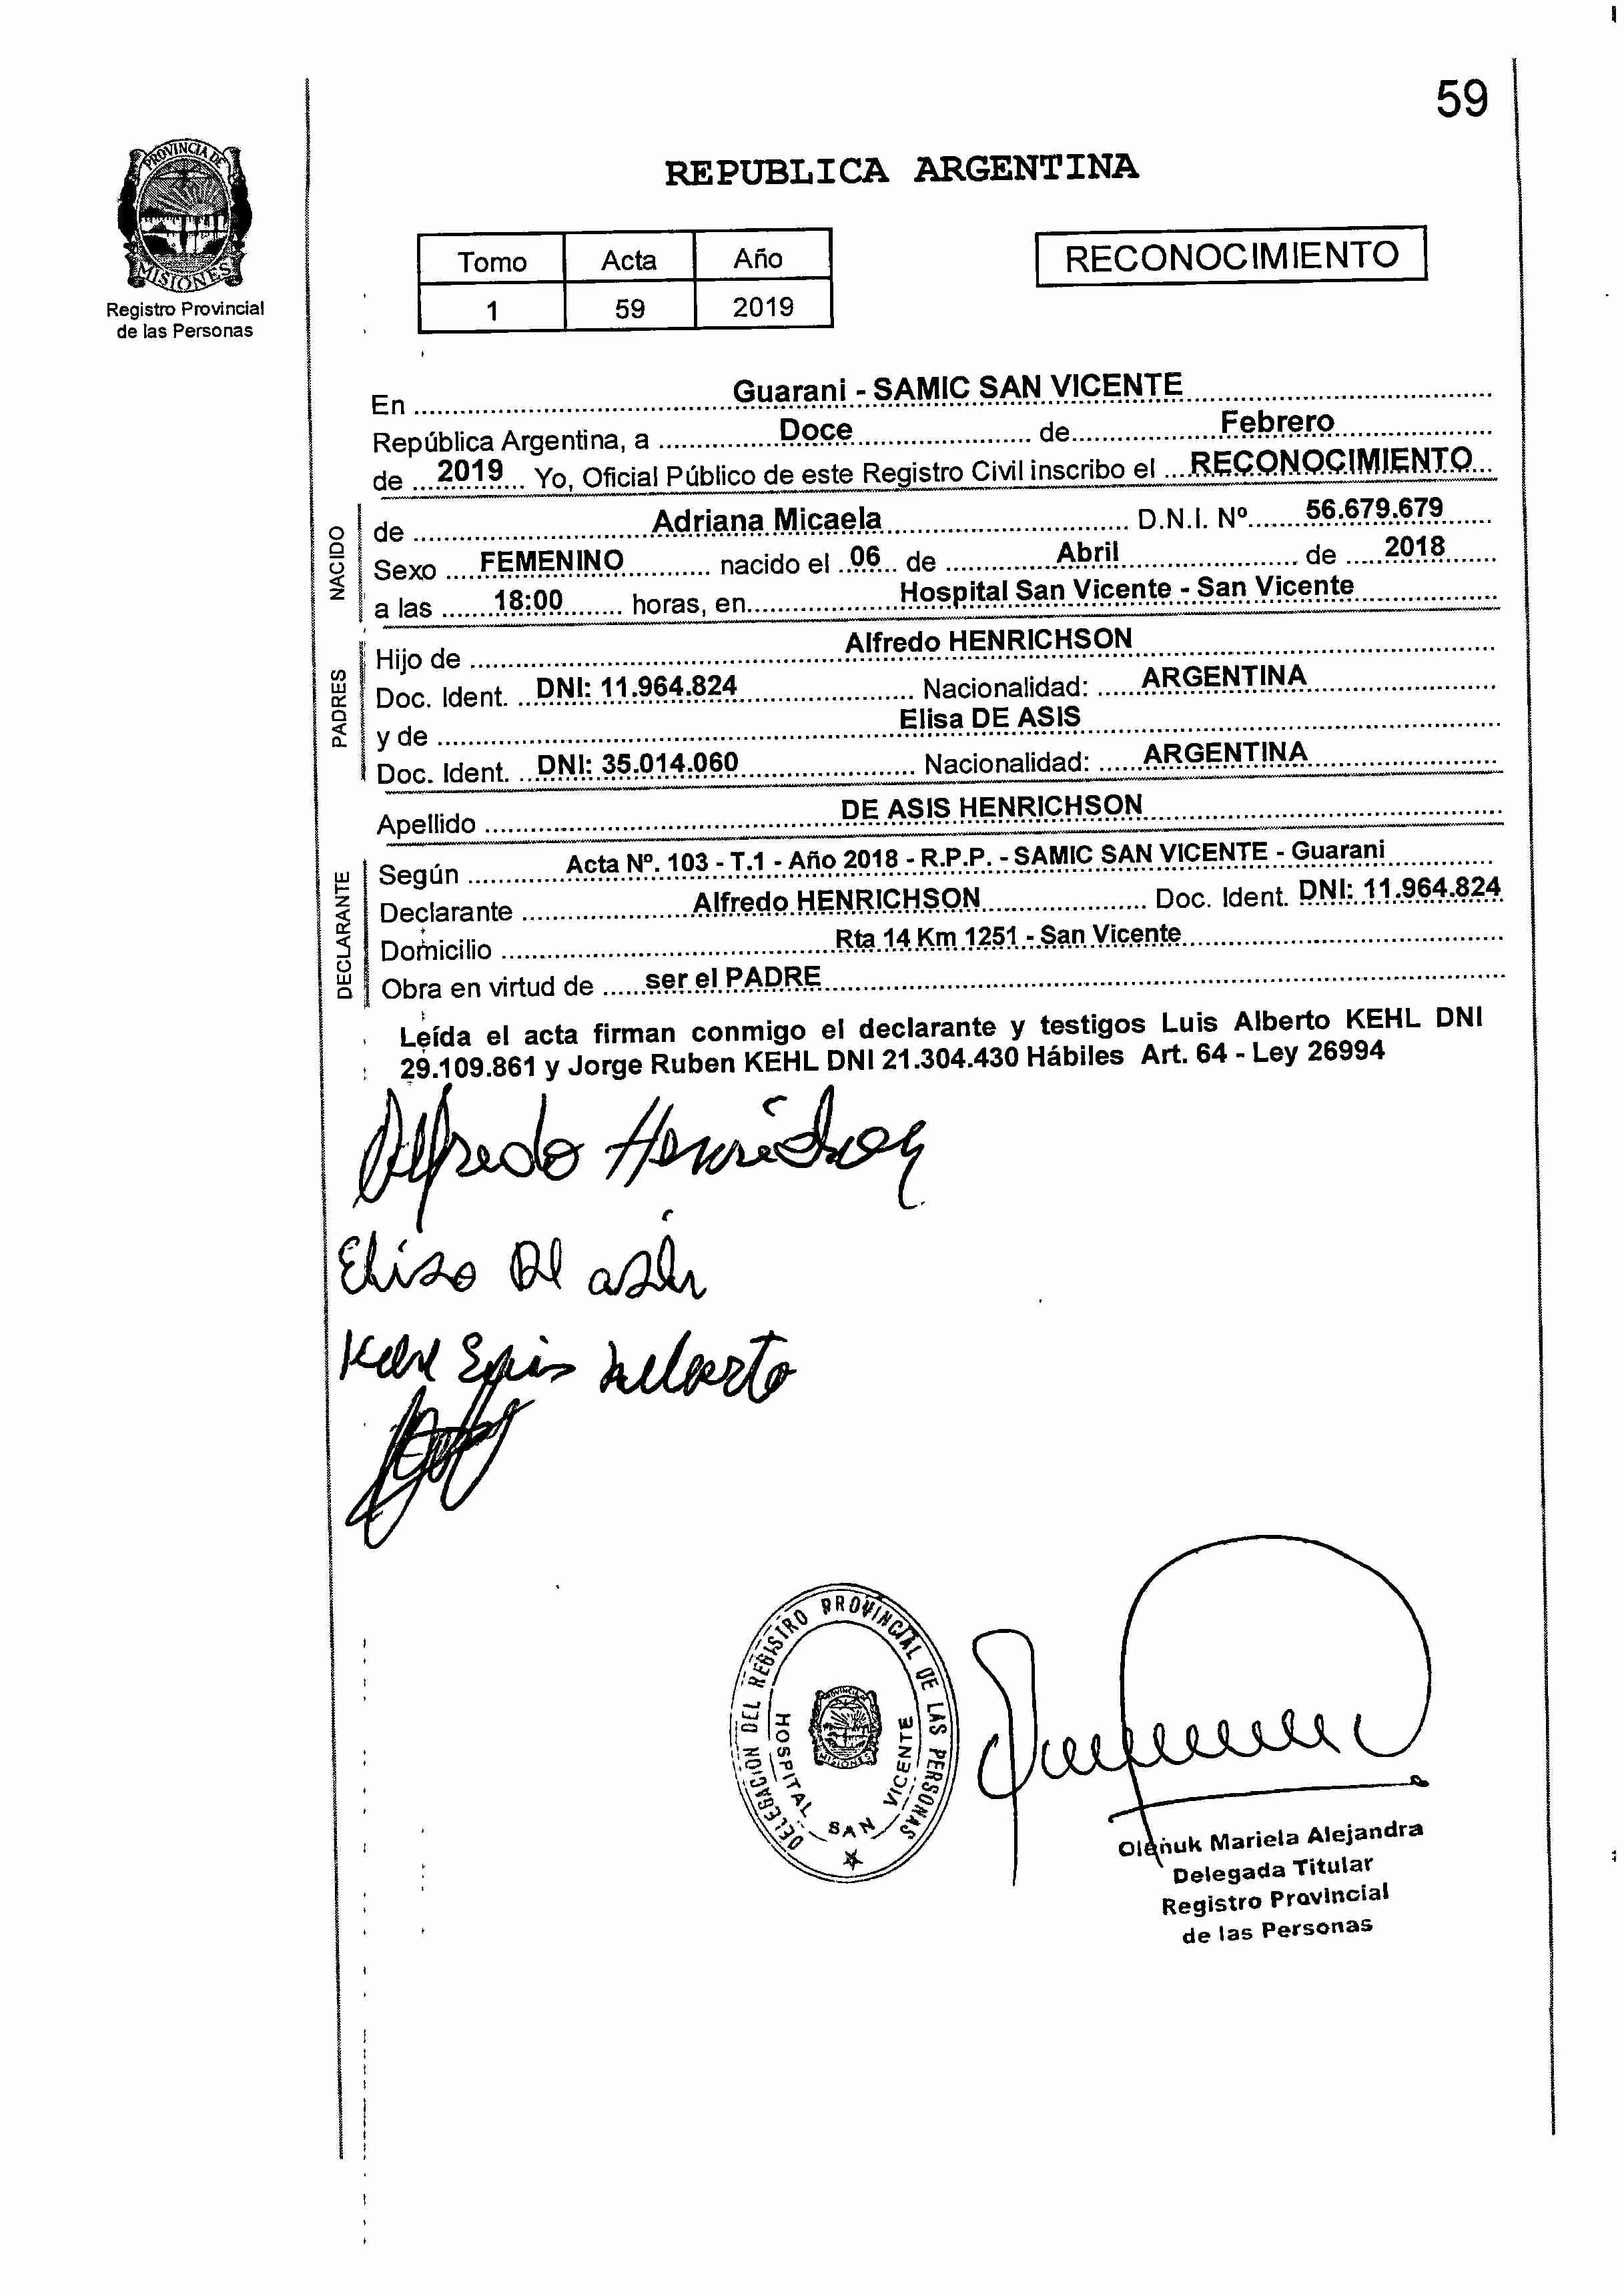 59
PROVINCIA DE
MISIONES
Registro Provincial
de las Personas
REPUBLICA ARGENTINA
Tomo Acta Año
1 59 2019
RECONOCIMIENTO
En Guarani - SAMIC SAN VICENTE
República Argentina, a Doce de Febrero
de 2019 Yo, Oficial Público de este Registro Civil inscribo el RECONOCIMIENTO
NACIDO
de Adriana Micaela D.N.I. Nº 56.679.679
Sexo FEMENINO nacido el 06 de Abril de 2018
a las 18:00 horas, en Hospital San Vicente - San Vicente
PADRES
Hijo de Alfredo HENRICHSON
Doc. Ident. DNI: 11.964.824 Nacionalidad: ARGENTINA
y de Elisa DE ASIS
Doc. Ident. DNI: 35.014.060 Nacionalidad: ARGENTINA
Apellido DE ASIS HENRICHSON
DECLARANTE
Según Acta Nº. 103 - T.1 - Año 2018 - R.P.P. - SAMIC SAN VICENTE - Guarani
Declarante Alfredo HENRICHSON Doc. Ident. DNI: 11.964.824
Domicilio Rta 14 Km 1251 - San Vicente
Obra en virtud de ser el PADRE
Leída el acta firman conmigo el declarante y testigos Luis Alberto KEHL DNI
29.109.861 y Jorge Ruben KEHL DNI 21.304.430 Hábiles Art. 64 - Ley 26994
Alfredo Henrichson
Elisa De asis
Kehl Luis Alberto
DELEGACION DEL REGISTRO PROVINCIAL DE LAS PERSONAS
HOSPITAL SAN VICENTE
Oleñuk Mariela Alejandra
Delegada Titular
Registro Provincial
de las Personas